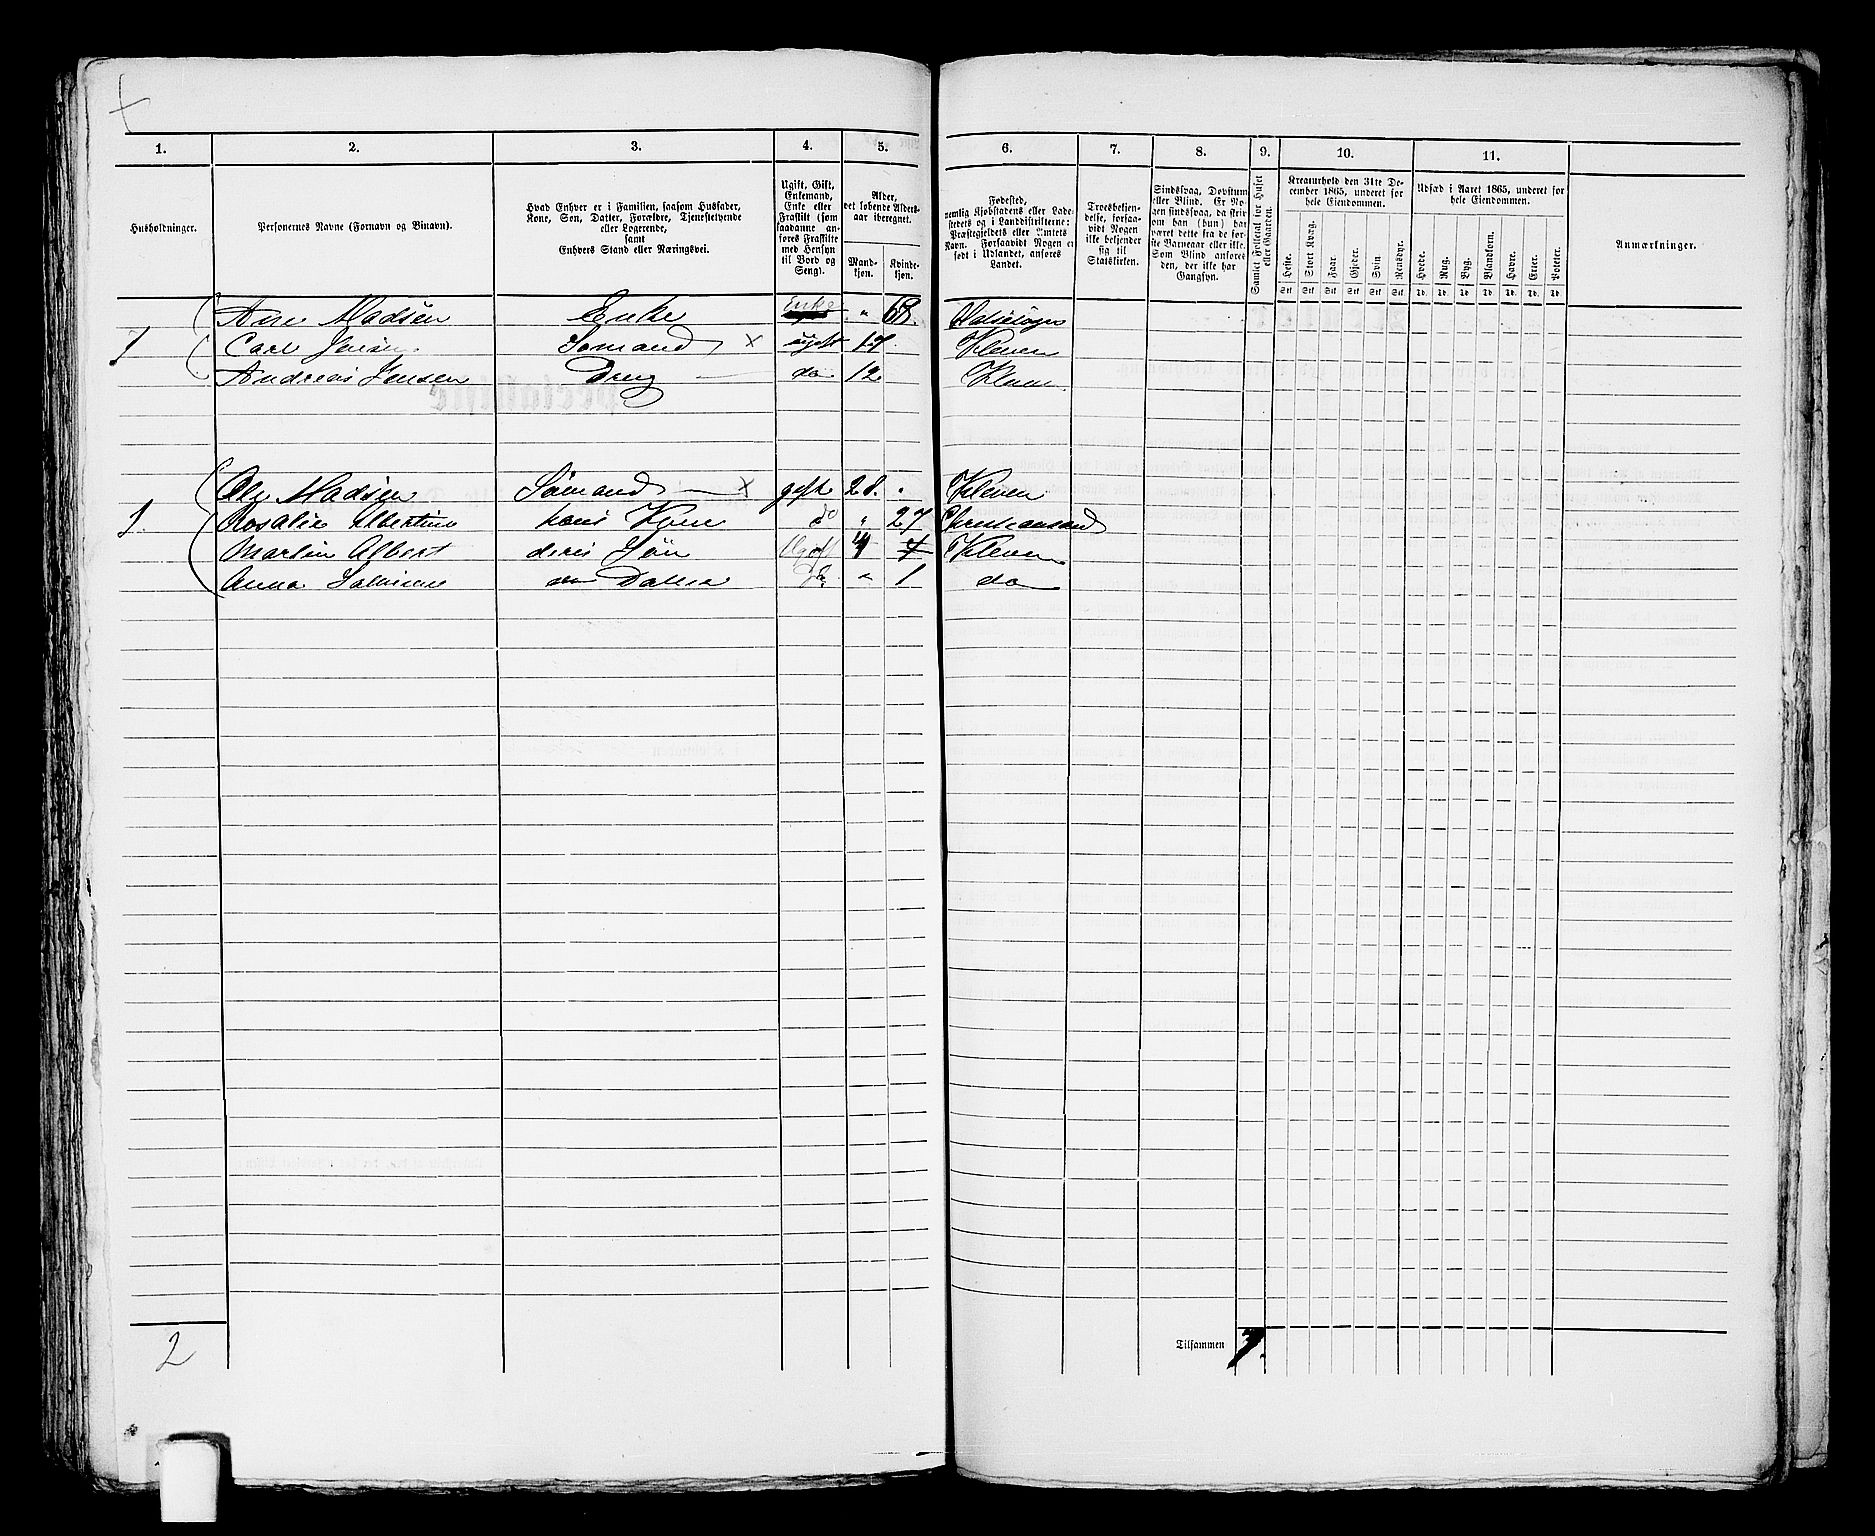 1. 2. 3. 4. 5. 6. 7. 8. 9. 10. 11.
Husholdninger.
Personernes Navne (Fornavn og Binavn).
Hvad Enhver er i Familien, saasom Husfader,
Kone, Søn, Datter, Forældre, Tjenestetyende
eller Logerende,
samt
Enhvers Stand eller Næringsvei.
Ugift, Gift,
Enkemand,
Enke eller
Fraskilt (som
saadanne an-
føres Fraskilte
med Hensyn
til Bord og
Seng).
Alder,
det løbende Alders-
aar iberegnet.
Mand-
kjøn.
Kvinde-
kjøn.
Fødested,
nemlig Kjøbstadens eller Lade-
stedets og i Landdistrikterne:
Præstegjeldets eller Amtets
Navn. Forsaavidt Nogen er
født i Udlandet, anføres
Landet.
Troesbekjen-
delse, forsaa-
vidt Nogen
ikke bekjender
sig til
Statskirken.
Sindssvag, Døvstum
eller Blind. Er No-
gen sindssvag, da skriv
om han (hun) har
været dette fra de før-
ste Barneaar eller ikke.
Som Blind anføres
den, der ikke har
Gangsyn.
Samlet Folketal for Huset
eller Gaarden.
Kreaturhold den 31te De-
cember 1865, underet for
hele Eiendommen.
Heste. Stort Kvæg. Faar. Gjeder. Svin. Rensdyr.
Stk Stk Stk Stk Stk Stk
Udsæd i Aaret 1865, underet for
hele Eiendommen.
Hvede. Rug. Byg. Blandkorn. Havre. Erter. Poteter.
Td. Td. Td. Td. Td. Td. Td.
Anmærkninger.
Ane Madsen Enke Enke " 68.
1 Carl Jensen Sømand x ugift 17 Kleven
Andreas Jensen Dreng do 12 Kleven
Ole Madsen Sømand x gift 28. Kleven
1. Rosalie Albertine hans Kone do " 27 Christiansand
Martin Albert deres Søn Ugift 4 Kleven
Anna do Datter Do " 1 do
2
Tilsammen 7.